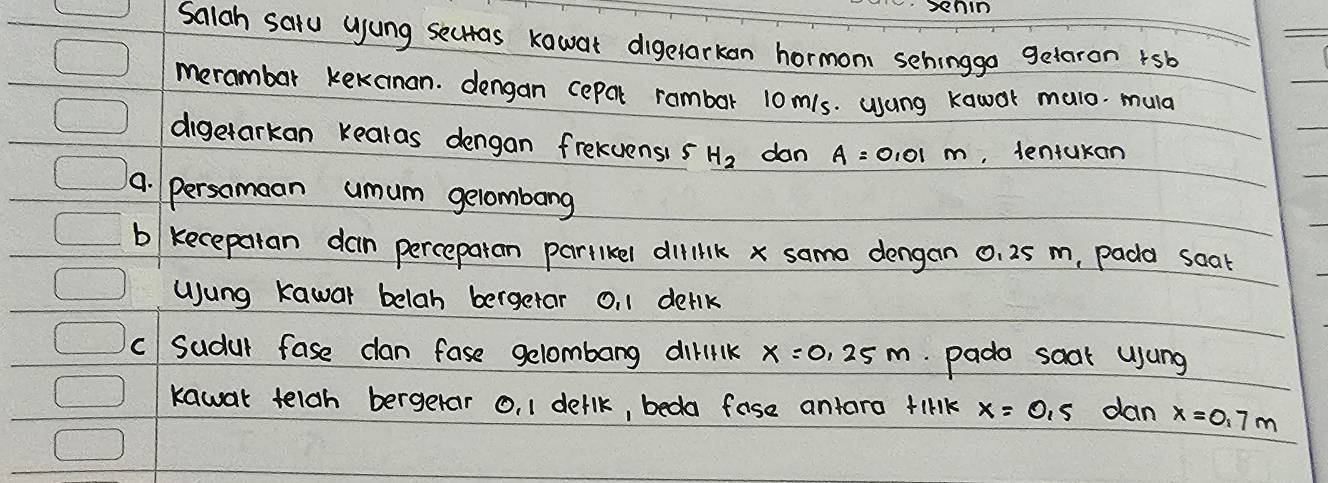 Senin
Salah satu ujung seutas kawat digetarkan harmoni sehingga getaran tsb
merambat kekanan. dengan cepat rambat 10 m/s. ujung kawat mula-mula
digetarkan keatas dengan frekuensi 5 Hz dan A = 0,01 m, tentukan
a. persamaan umum gelombang
b kecepatan dan percepatan partikel dititik x sama dengan 0,25 m, pada saat
ujung kawat belah bergetar 0,1 detik
c sudut fase dan fase gelombang dititik x = 0,25 m. pada saat ujung
kawat telah bergetar 0,1 detik, beda fase antara titik x = 0,5 dan x = 0,7 m